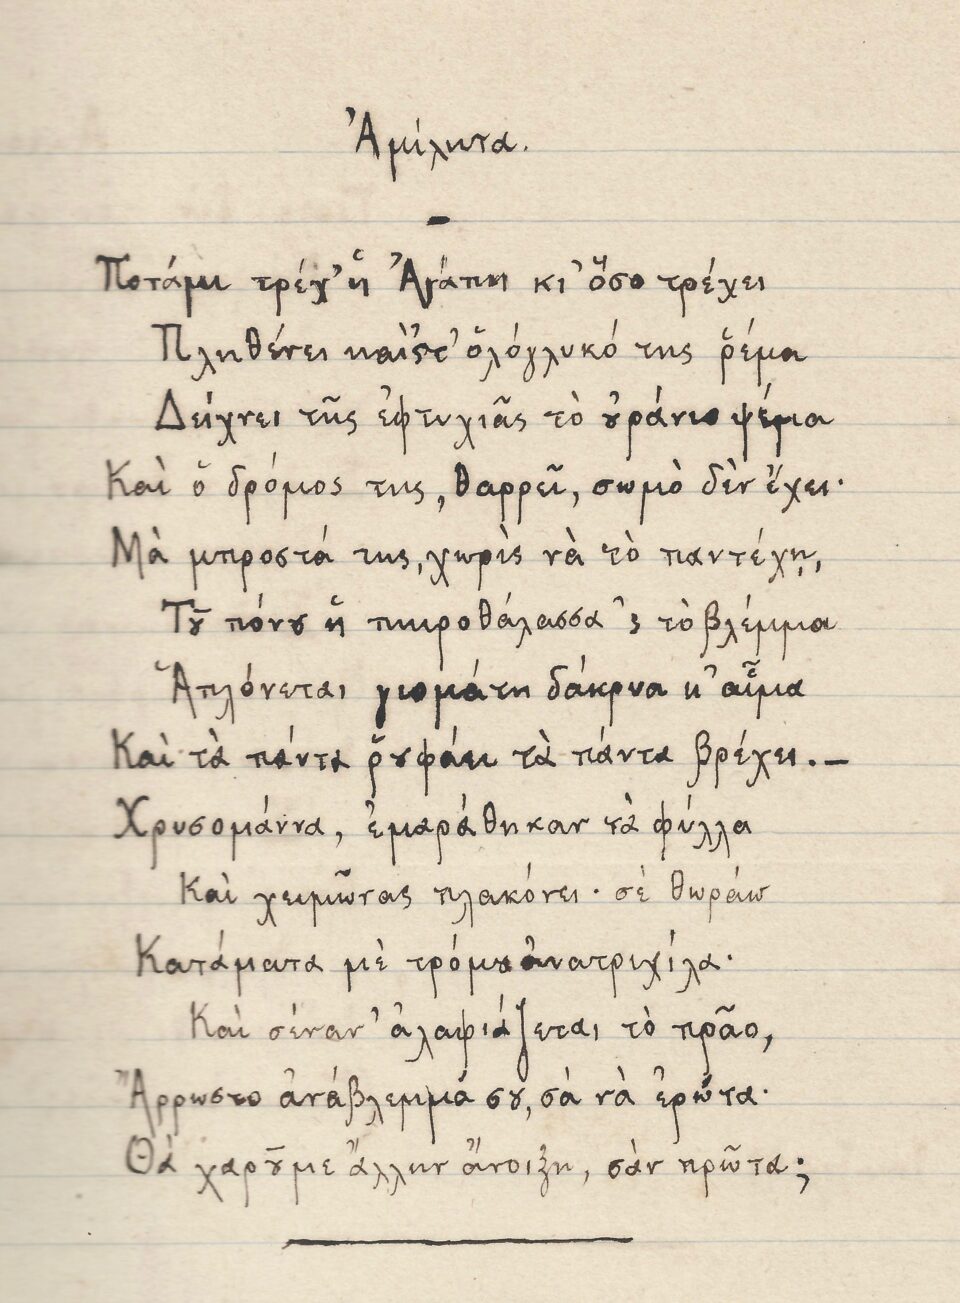 Ἀμίλητα.
Ποτάμι τρέχ' ἡ Ἀγάπη κι' ὅσο τρέχει
Πληθένει καὶ 'ς τ' ὁλόγλυκό της ῥέμα
Δείχνει τῆς ἐφτυχιᾶς τὸ ȣ̓ράνιο ψέμα
Καὶ ὁ δρόμος της, θαρρεῖ, σωμὸ δὲν ἔχει·
Μὰ μπροστά της, χωρὶς νὰ τὸ παντέχῃ,
Τȣ͂ πόνȣ ἡ πικροθάλασσα 'ς τὸ βλέμμα
Ἁπλόνεται γιομάτη δάκρυα κ' αἷμα
Καὶ τὰ πάντα ῥȣφάει τὰ πάντα βρέχει. —
Χρυσομάννα, ἐμαράθηκαν τὰ φύλλα
Καὶ χειμῶνας πλακόνει· σὲ θωράω
Κατάματα μὲ τρόμȣ ἀνατριχίλα·
Καὶ σέναν' ἀλαφιάζεται τὸ πρᾶο,
Ἄρρωστο ἀνάβλεμμά σȣ, σὰ νὰ ἐρώτα·
Θὰ χαρȣ͂με ἄλλην ἄνοιξη, σὰν πρῶτα;